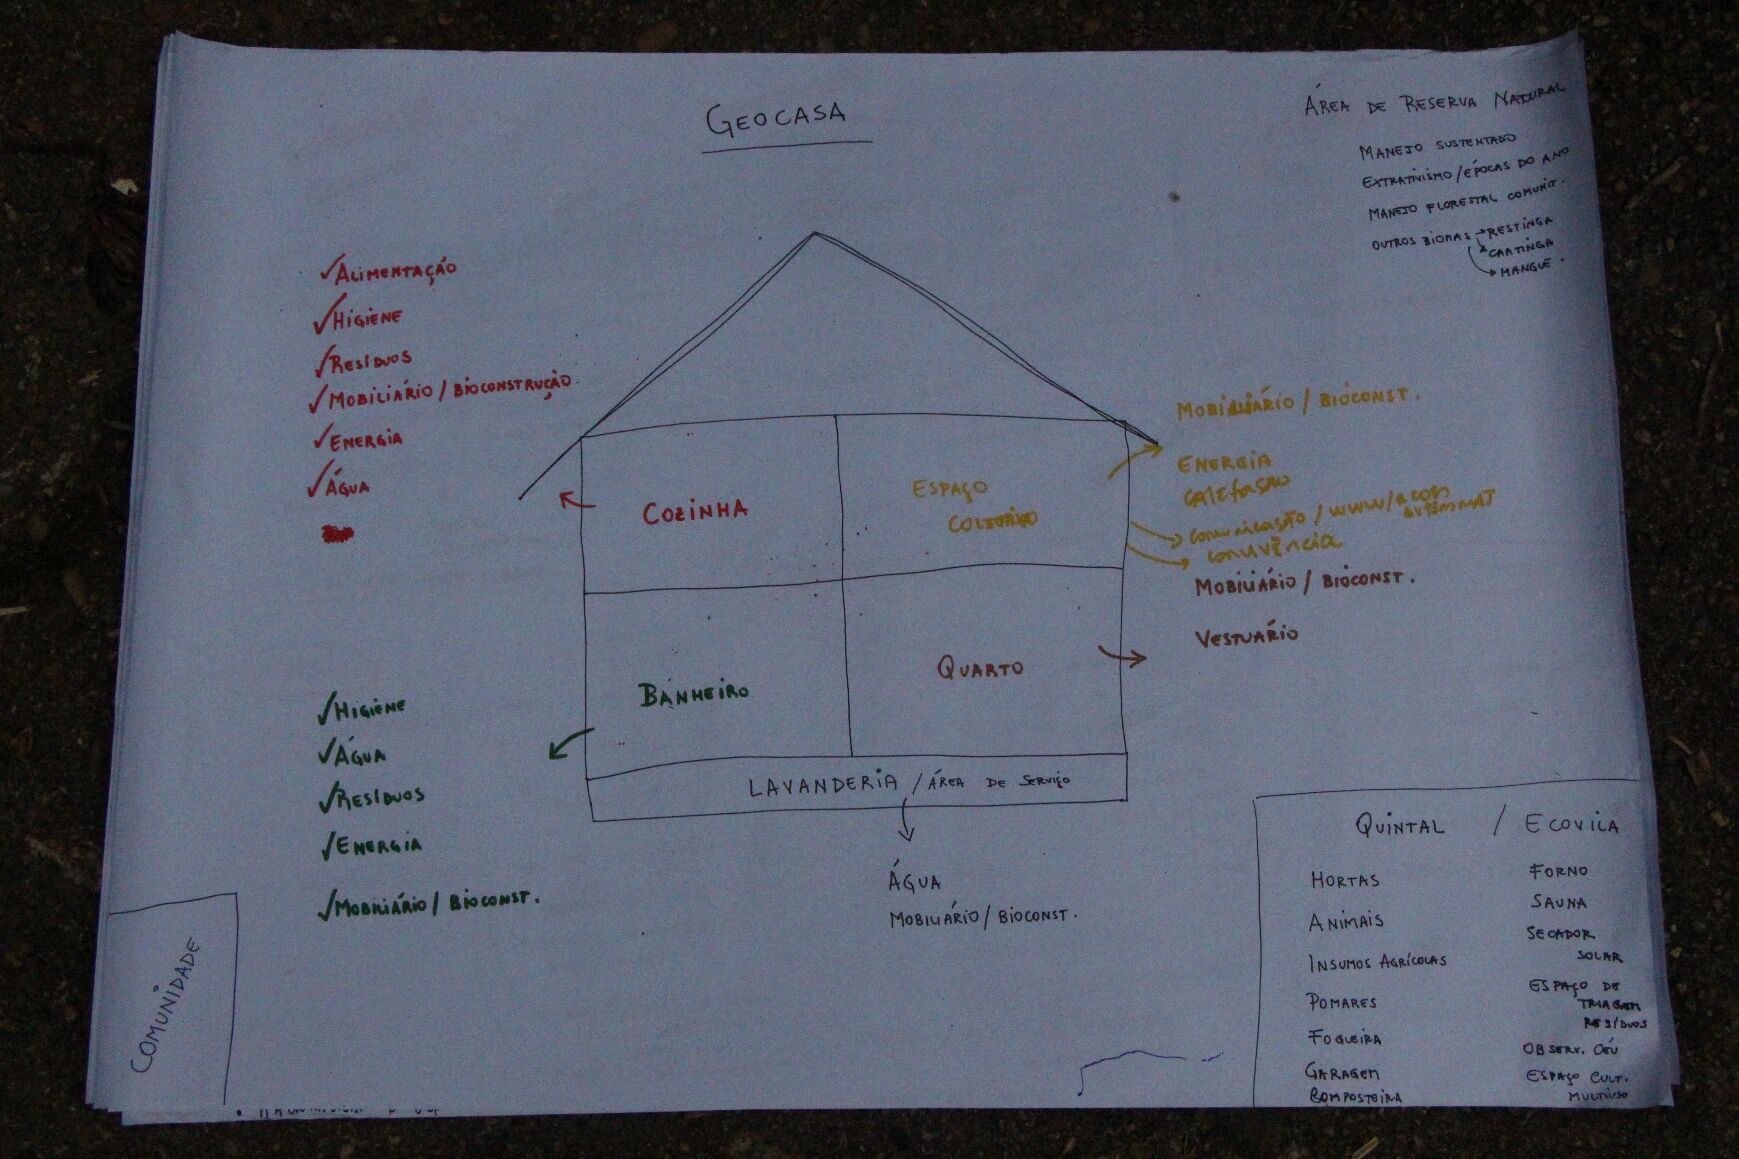 GEOCASA
ÁREA DE RESERVA NATURAL
MANEJO SUSTENTADO
EXTRATIVISMO / ÉPOCAS DO ANO
MANEJO FLORESTAL COMUNIT.
OUTROS BIOMAS → RESTINGA
→ CAATINGA
→ MANGUE.
✓ ALIMENTAÇÃO
✓ HIGIENE
✓ RESÍDUOS
✓ MOBILIÁRIO / BIOCONSTRUÇÃO
✓ ENERGIA
✓ ÁGUA
COZINHA
ESPAÇO
MOBILIÁRIO / BIOCONST.
ENERGIA
CALEFAÇÃO
COMUNICAÇÃO / WWW /
CONVIVÊNCIA
MOBILIÁRIO / BIOCONST.
VESTUÁRIO
BANHEIRO
QUARTO
✓ HIGIENE
✓ ÁGUA
✓ RESÍDUOS
✓ ENERGIA
✓ MOBILIÁRIO / BIOCONST.
LAVANDERIA / ÁREA DE SERVIÇO
ÁGUA
MOBILIÁRIO / BIOCONST.
COMUNIDADE
QUINTAL / ECOVILA
HORTAS
ANIMAIS
INSUMOS AGRÍCOLAS
POMARES
FOGUEIRA
GARAGEM
COMPOSTEIRA
FORNO
SAUNA
SECADOR
SOLAR
ESPAÇO DE
TRIAGEM
RESÍDUOS
OBSERV. CÉU
ESPAÇO CULT.
MULTIUSO